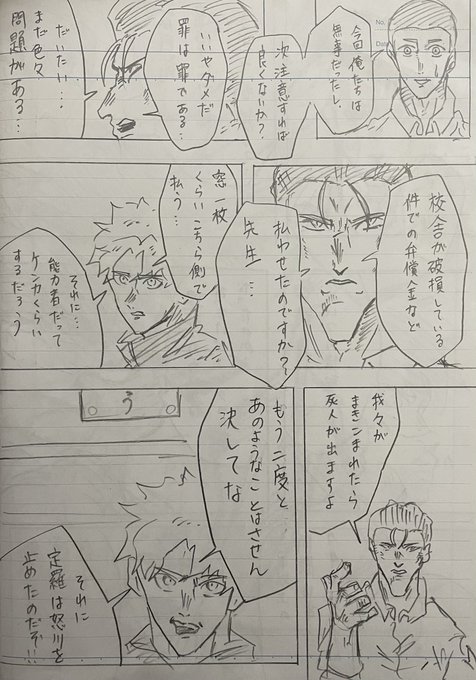 No.
Date
今回俺たちは
無事だったし、
次注意すれば
良くないか？
いいやダメだ
罪は罪である…
だいたい…
まだ色々
問題がある…
校舎が破損している
件での弁償金など
払わせたのですか？
先生…
窓一枚
くらいこちら側で
払う…
それに…
能力者だって
ケンカくらい
するだろう？
我々が
まきこまれたら
灰人が出ますよ
もう二度と
あのようなことはさせん
決してな
う
それに
定羅は怒川を
止めたのだぞ!!